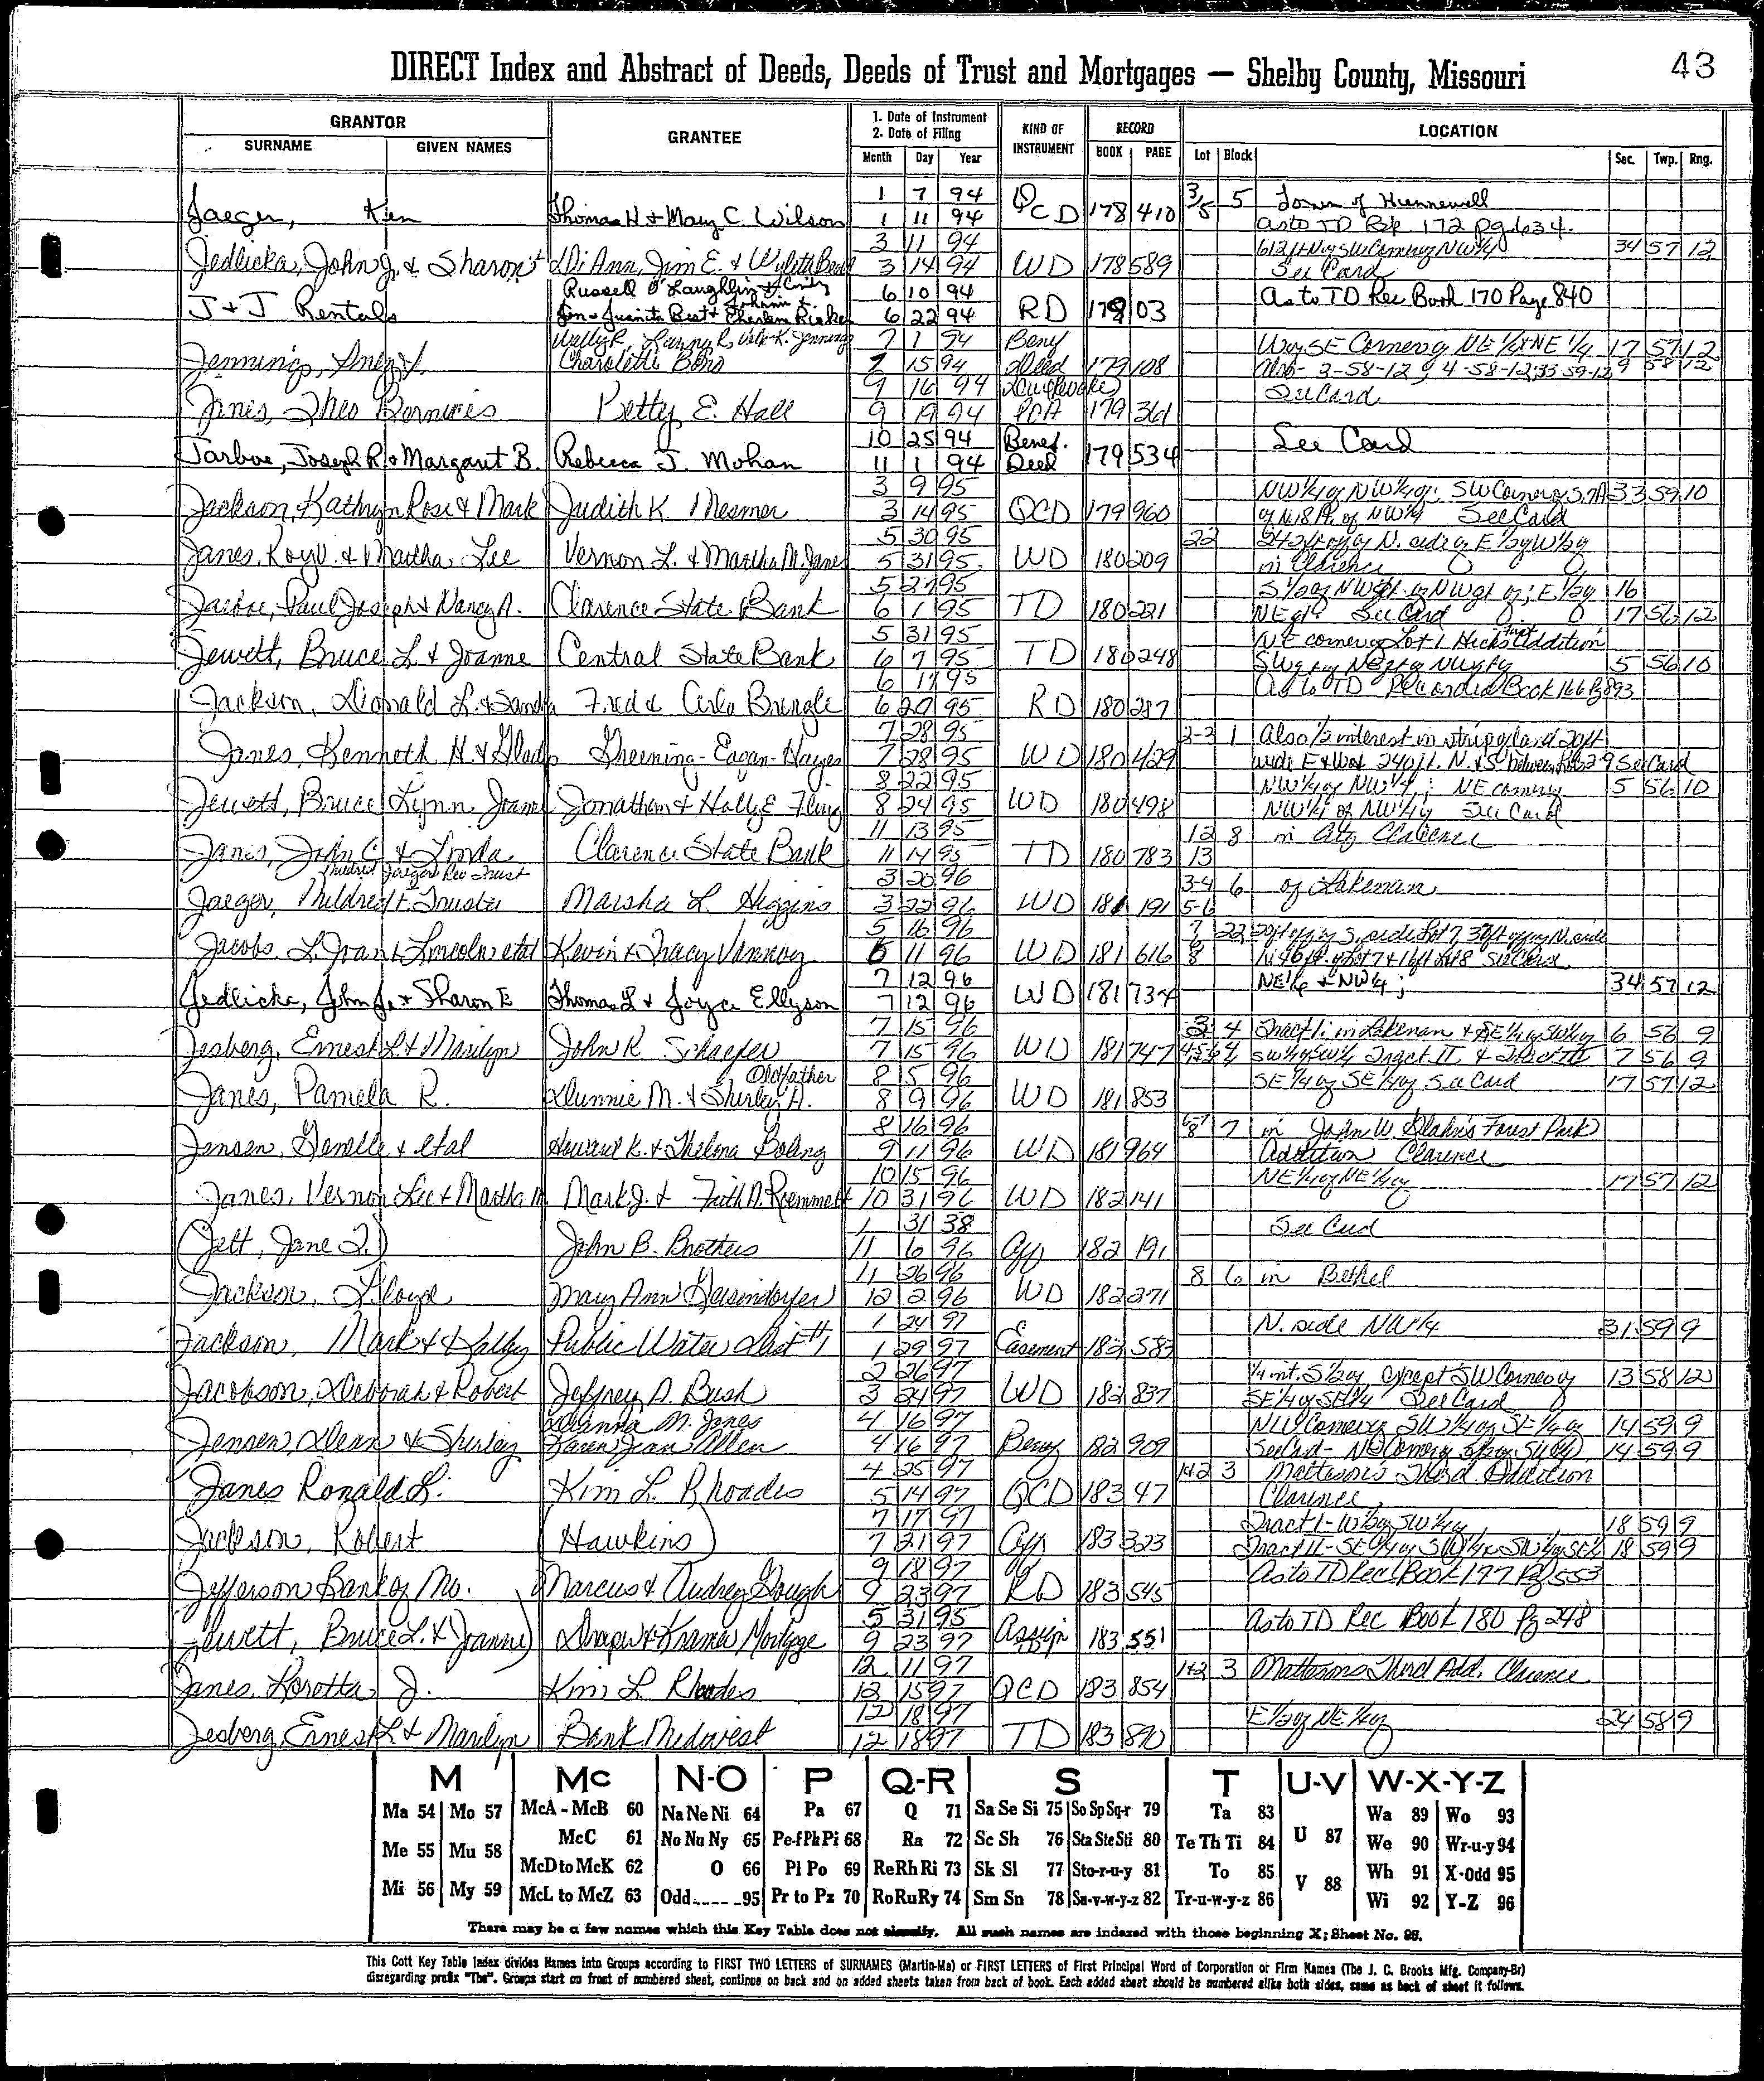 DIRECT Index and Abstract of Deeds, Deeds of Trust and Mortgages — Shelby County, Missouri
43
GRANTOR
SURNAME GIVEN NAMES
GRANTEE
1. Date of Instrument
2. Date of Filing
Month Day Year
KIND OF INSTRUMENT
RECORD
BOOK PAGE
LOCATION
Lot Block Sec. Twp. Rng.
1 7 94 3/5 5 Town of Hunnewell
Jaeger, Ken Thomas H & Mary C. Wilson 1 11 94 QCD 178 410 as to TD Bk 172 pg 634.
3 11 94 34 57 12
Jedlicka, John J. & Sharon 3 14 94 WD 178 589 See Card
Russell O'Laughlin & Cindy 6 10 94 As to TD Rec Book 170 Page 840
J & J Rentals 6 22 94 RD 179 03
7 1 94 Beny SE Corner of NE 1/4 NE 1/4 17 57 12
Jennings, Charolette 7 15 94 Deed 179 108 Also- 3-58-12 4-58-12; 33 59-12 9 58 12
9 16 94 See Card
Janes, Theo Betty E. Hall 9 19 94 POA 179 361
10 25 94 Benef. See Card
Jarboe, Joseph R & Margaret B. Rebecca J. Mohan 11 1 94 Deed 179 534
3 9 95 NW 1/4 of NW 1/4 of; SW Corner 33 59 10
Jackson, Kathryn Rose & Mark Judith K. Mesmer 3 14 95 QCD 179 960 of NW 1/4 See Card
5 30 95 22 24 ft off of N. side of E 1/2 of W 1/2 of
Janes, Roy V. & Martha Lee Vernon L. & Martha M. Janes 5 31 95 WD 180 209 in Clarence
5 27 95 S. 1/2 of NW qt. of NW qt of; E. 1/2 of 16
Jarboe, Paul Joseph & Nancy A. Clarence State Bank 6 1 95 TD 180 221 NE qt See Card 17 56 12
5 31 95 NE corner of Lot 1 Hicks First Addition
Jewett, Bruce L & Joanne Central State Bank 6 7 95 TD 180 248 5 56 10
6 17 95 As to TD Recorded Book 166 Pg 893
Jackson, Donald L. & Sandra Fred & Carla Brengle 6 20 95 RD 180 287
7 28 95 2-3 1 Also 1/2 interest in strip of land 20 ft
Janes, Kenneth H. & Gladys Greening-Eagan-Hayes 7 28 95 WD 180 429 wide E & W 240 ft. N & S between See Card
8 22 95 NW 1/4 of NW 1/4; NE corner 5 56 10
Jewett, Bruce Lynn Joanne Jonathan & Holly E 8 24 95 WD 180 498 NW 1/4 of NW 1/4 of See Card
11 13 95 12 8 in City Clarence
Janes, John C & Linda Clarence State Bank 11 14 95 TD 180 783 13
Mildred Jaeger Rev Trust 3 20 96 3-4 6 of Lakenan
Jaeger, Mildred F. Trustee Marsha L. Higgins 3 22 96 WD 181 191 5-6
5 16 96 7 22 20 ft off of S. side Lot 7, 30 ft off of N. side
Jacobs, L. Grant & Lincoln etal Kevin & Tracy Vannoy 6 11 96 WD 181 616 8 See Card
7 12 96 NE 1/4 & NW 1/4; 34 57 12
Jedlicka, John J. & Sharon E Thomas L & Joyce Ellyson 7 12 96 WD 181 734
7 15 96 3 4 Tract I: in Lakenan & SE 1/4 of SW 1/4 6 56 9
Jesberg, Ernest L & Marilyn John R Schaefer 7 15 96 WD 181 747 SW 1/4 Tract II & Tract III 7 56 9
Oldfather 8 5 96 SE 1/4 of SE 1/4 of See Card 17 57 12
Janes, Pamela R. Dunnie M. & Shirley A. 8 9 96 WD 181 853
8 16 96 7 in John W. Blakin's Forest Park
Jensen, Genelle & etal Howard K. & Thelma Boling 9 11 96 WD 181 964 8 Addition Clarence
10 15 96 NE 1/4 of NE 1/4 of 17 57 12
Janes, Vernon Lee & Martha M Mark J. & Faith D. Roemmelt 10 31 96 WD 182 141
1 31 38 See Card
(Jett, Jane T.) John B. Brothers 11 6 96 Aff 182 191
11 26 96 8 6 in Bethel
Jackson, Lloyd Mary Ann Geisendorfer 12 2 96 WD 182 271
1 24 97 N. side NW 1/4 31 59 9
Jackson, Mark & Kathy Public Water Dist #1 1 29 97 Easement 182 583
2 26 97 1/4 int. S 1/2 of except SW Corner of 13 58 12
Jacobson, Deborah & Robert Jeffrey D. Bush 3 24 97 WD 182 837 SE 1/4 of SE 1/4 See Card
Deanna M. Jones 4 16 97 NW Corner of SW 1/4 of SE 1/4 of 14 59 9
Jensen, Dean & Shirley Karen Jean Allen 4 16 97 Beny 182 909 See Card- 14 59 9
4 25 97 1+2 3 Matteson's Third Addition
Janes Ronald L. Kim L. Rhoades 5 14 97 QCD 183 47 Clarence
7 17 97 Tract I- W 1/2 of SW 1/4 18 59 9
Jackson, Robert (Hawkins) 7 21 97 Aff 183 323 Tract II- SE 1/4 of SW 1/4 & SW 1/4 of SE 1/4 18 59 9
9 18 97 As to TD Rec Book 177 Pg 553
Jefferson Bank of Mo. Marcus & Audrey Gough 9 23 97 RD 183 545
5 31 95 As to TD Rec Book 180 Pg 248
Jewett, Bruce L. & Joanne) Draper & Kramer Mortgage 9 23 97 Assign 183 551
12 11 97 1+2 3 Mattesons Third Add. Clarence
Janes, Loretta J. Kim L Rhoades 12 15 97 QCD 183 854
12 18 97 E 1/2 of NE 1/4 of 24 58 9
Jesberg, Ernest L & Marilyn Bank Midwest 12 18 97 TD 183 890
M Mc N-O P Q-R S T U-V W-X-Y-Z
Ma 54 Mo 57 McA - McB 60 Na Ne Ni 64 Pa 67 Q 71 Sa Se Si 75 So Sp Sq-r 79 Ta 83 Wa 89 Wo 93
Me 55 Mu 58 McC 61 No Nu Ny 65 Pe-f Ph Pi 68 Ra 72 Sc Sh 76 Sta Ste Sti 80 Te Th Ti 84 U 87 We 90 Wr-u-y 94
McD to McK 62 O 66 Pl Po 69 Re Rh Ri 73 Sk Sl 77 Sto-r-u-y 81 To 85 Wh 91 X-Odd 95
Mi 56 My 59 McL to McZ 63 Odd 95 Pr to Pz 70 Ro Ru Ry 74 Sm Sn 78 Su-v-w-y-z 82 Tr-u-w-y-z 86 V 88 Wi 92 Y-Z 96
There may be a few names which this Key Table does not classify. All such names are indexed with those beginning X; Sheet No. 95.
This Cott Key Table Index divides Names into Groups according to FIRST TWO LETTERS of SURNAMES (Martin-Ma) or FIRST LETTERS of First Principal Word of Corporation or Firm Names (The J. C. Brooks Mfg. Company-Br)
disregarding prefix "The". Groups start on front of numbered sheet, continue on back and on added sheets taken from back of book. Each added sheet should be numbered alike both sides, same as back of sheet it follows.